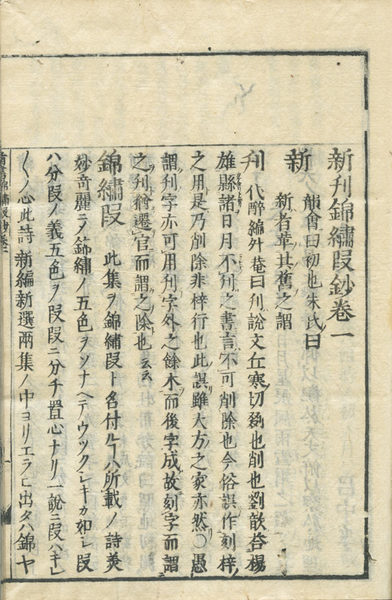 新刊錦繡段鈔卷一
新 韻會曰初也朱氏曰
新者革其舊之謂
刊 代醉編外菴曰刊說文丘寒切剟也削也劉歆荅楊
雄縣諸日月不刊之書言不可削除也今俗誤作刻梓
之用是乃削除非梓行也此誤雖大方之家亦然〇愚
謂刊字亦可用刊字外之餘木而後字成故刻字而謂
之刊猶遷官而謂之除也云云
錦繡段 此集ヲ錦繡段ト名付ルハ所載ノ詩美
妙奇麗ヲ錦繡ノ五色ヲソナヘテウツクシキカ如シ段
ハ分段ノ義五色ヲ段段ニ分チ置心ナリ一說ニ段ハキレ
〱ノ心此詩新編新選兩集ノ中ヨリエラヒ出タハ錦ヤ